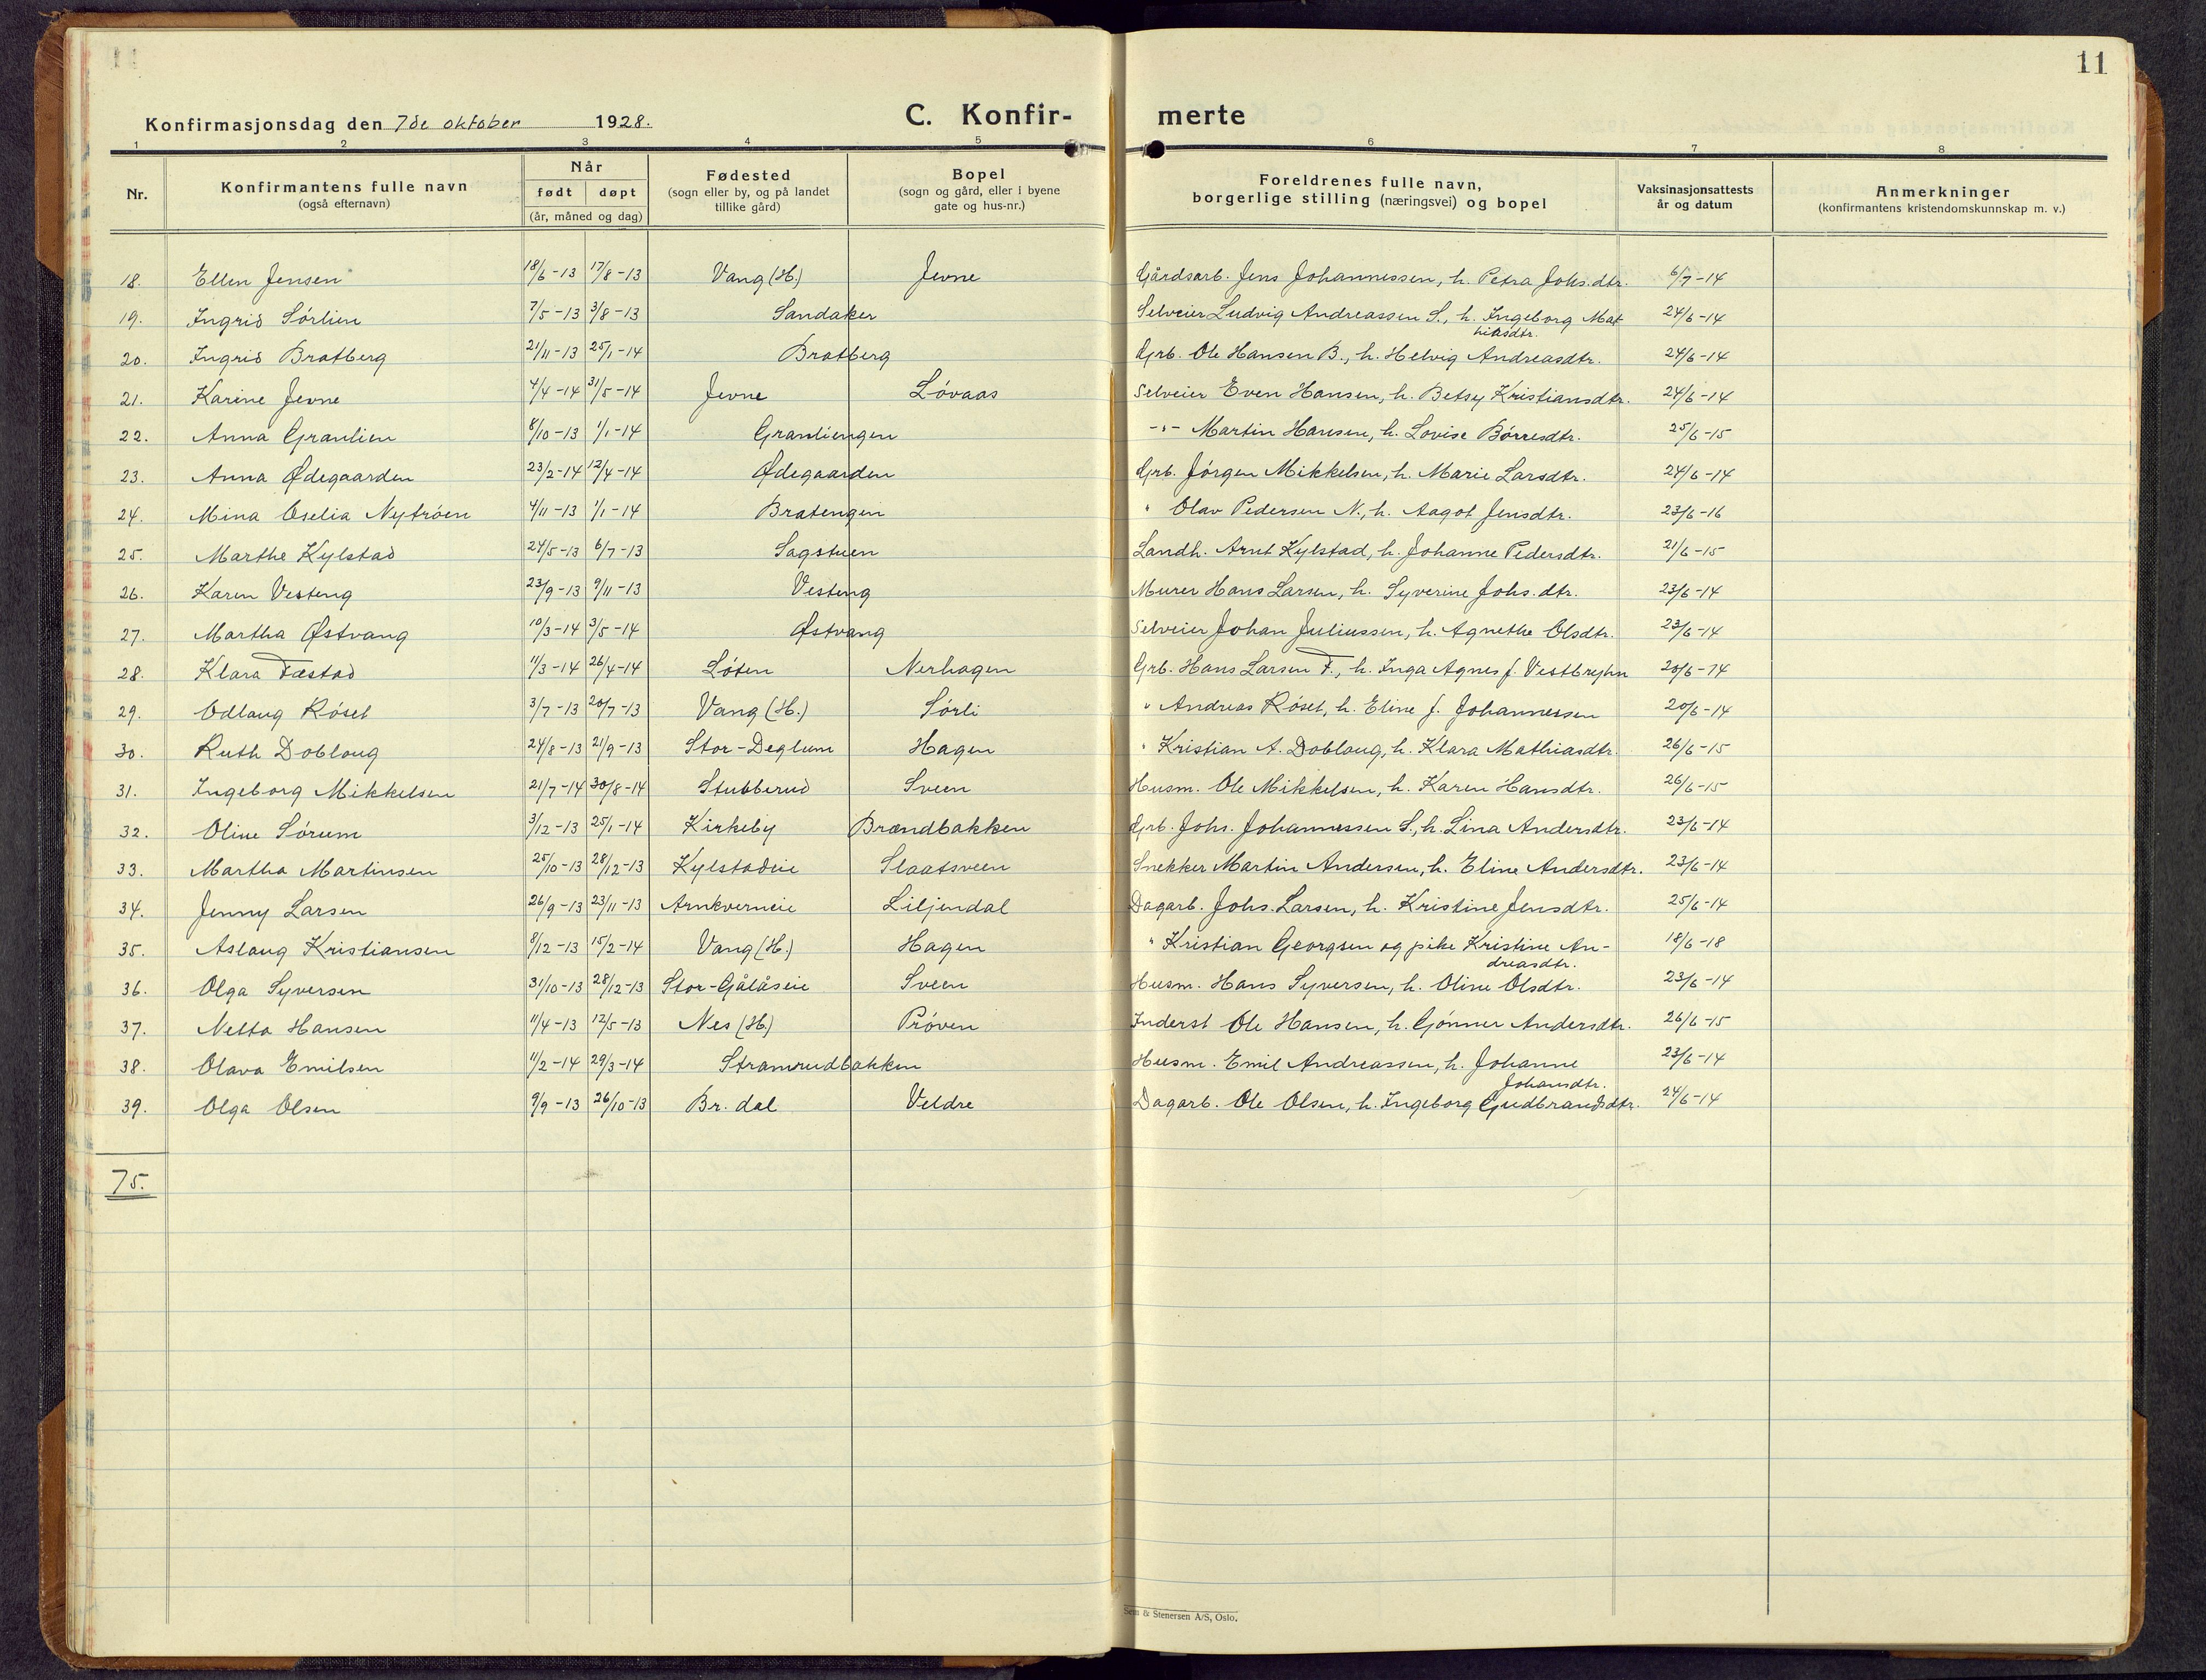 11
Konfirmasjonsdag den 7de oktober 1928.
C. Konfir- merte
1 2 3 4 5 6 7 8
Nr. Konfirmantens fulle navn (også efternavn) Når født døpt (år, måned og dag) Fødested (sogn eller by, og på landet tillike gård) Bopel (sogn og gård, eller i byene gate og hus-nr.) Foreldrenes fulle navn, borgerlige stilling (næringsvei) og bopel Vaksinasjonsattests år og datum Anmerkninger (konfirmantens kristendomskunnskap m. v.)
18. Ellen Jensen 18/6-13 17/8-13 Vang (H.) Jevne Gårdsarb. Jens Johannessen, h. Petra Johs.dtr. 6/7-14
19. Ingrid Sørlien 7/5-13 3/8-13 Sandaker Selveier Ludvig Andreassen S., h. Ingeborg Mat 24/6-14
hiasdtr.
20. Ingrid Bratberg 21/11-13 25/1-14 Bratberg Grb. Ole Hansen B., h. Helvig Andreasdtr. 24/6-14
21. Karine Jevne 4/4-14 31/5-14 Jevne Løvaas Selveier Even Hansen, h. Betsy Kristiansdtr. 24/6-14
22. Anna Granlien 8/10-13 1/1-14 Granliengen -"- Martin Hansen, h. Lovise Børresdtr. 25/6-15
23. Anna Ødegaarden 23/2-14 12/4-14 Ødegaarden Grb. Jørgen Mikkelsen, h. Marie Larsdtr. 24/6-14
24. Mina Oselia Nytrøen 4/11-13 1/1-14 Bratengen " Olav Pedersen N., h. Aagot Jensdtr. 23/6-16
25. Marthe Kylstad 24/5-13 6/7-13 Sagstuen Landh. Arnt Kylstad, h. Johanne Pedersdtr. 21/6-15
26. Karen Vesteng 23/9-13 9/11-13 Vesteng Murer Hans Larsen, h. Syverine Johs.dtr. 23/6-14
27. Martha Østvang 10/3-14 3/5-14 Østvang Selveier Johan Juliussen, h. Agnethe Olsdtr. 23/6-14
28. Klara Fæstad 11/3-14 26/4-14 Løten Nerhagen Grb. Hans Larsen F., h. Inga Agnes f. Vestbryhn 20/6-14
29. Odlaug Røset 3/7-13 20/7-13 Vang (H.) Sørli " Andreas Røset, h. Eline f. Johannessen 20/6-14
30. Ruth Dobloug 24/8-13 21/9-13 Stor-Deglum Hagen " Kristian A. Dobloug, h. Klara Mathiasdtr. 26/6-15
31. Ingeborg Mikkelsen 21/7-14 30/8-14 Stubberud Sveen Husm. Ole Mikkelsen, h. Karen Hansdtr. 26/6-15
32. Oline Sørum 3/12-13 25/1-14 Kirkeby Brændbakken Grb. Johs. Johannessen S., h. Lina Andersdtr. 23/6-14
33. Martha Martinsen 25/10-13 28/12-13 Kylstadeie Slaatsveen Snekker Martin Andersen, h. Eline Andersdtr. 23/6-14
34. Jenny Larsen 26/9-13 23/11-13 Arnkverneie Liljendal Dagarb. Johs. Larsen, h. Kristine Jensdtr. 25/6-14
35. Aslaug Kristiansen 8/12-13 15/2-14 Vang (H.) Hagen " Kristian Georgsen og pike Kristine An- 18/6-18
dreasdtr.
36. Olga Syversen 31/10-13 28/12-13 Stor-Gålåseie Sveen Husm. Hans Syversen, h. Oline Olsdtr. 23/6-14
37. Netta Hansen 11/4-13 12/5-13 Nes (H.) Prøven Inderst Ole Hansen, h. Gønner Andersdtr. 26/6-15
38. Olava Emilsen 11/2-14 29/3-14 Stramrudbakken Husm. Emil Andreassen, h. Johanne 23/6-14
Johansdtr.
39. Olga Olsen 9/9-13 26/10-13 Br. dal Veldre Dagarb. Ole Olsen, h. Ingeborg Gudbrandsdtr. 24/6-14
75.
Sem & Stenersen A/S, Oslo.